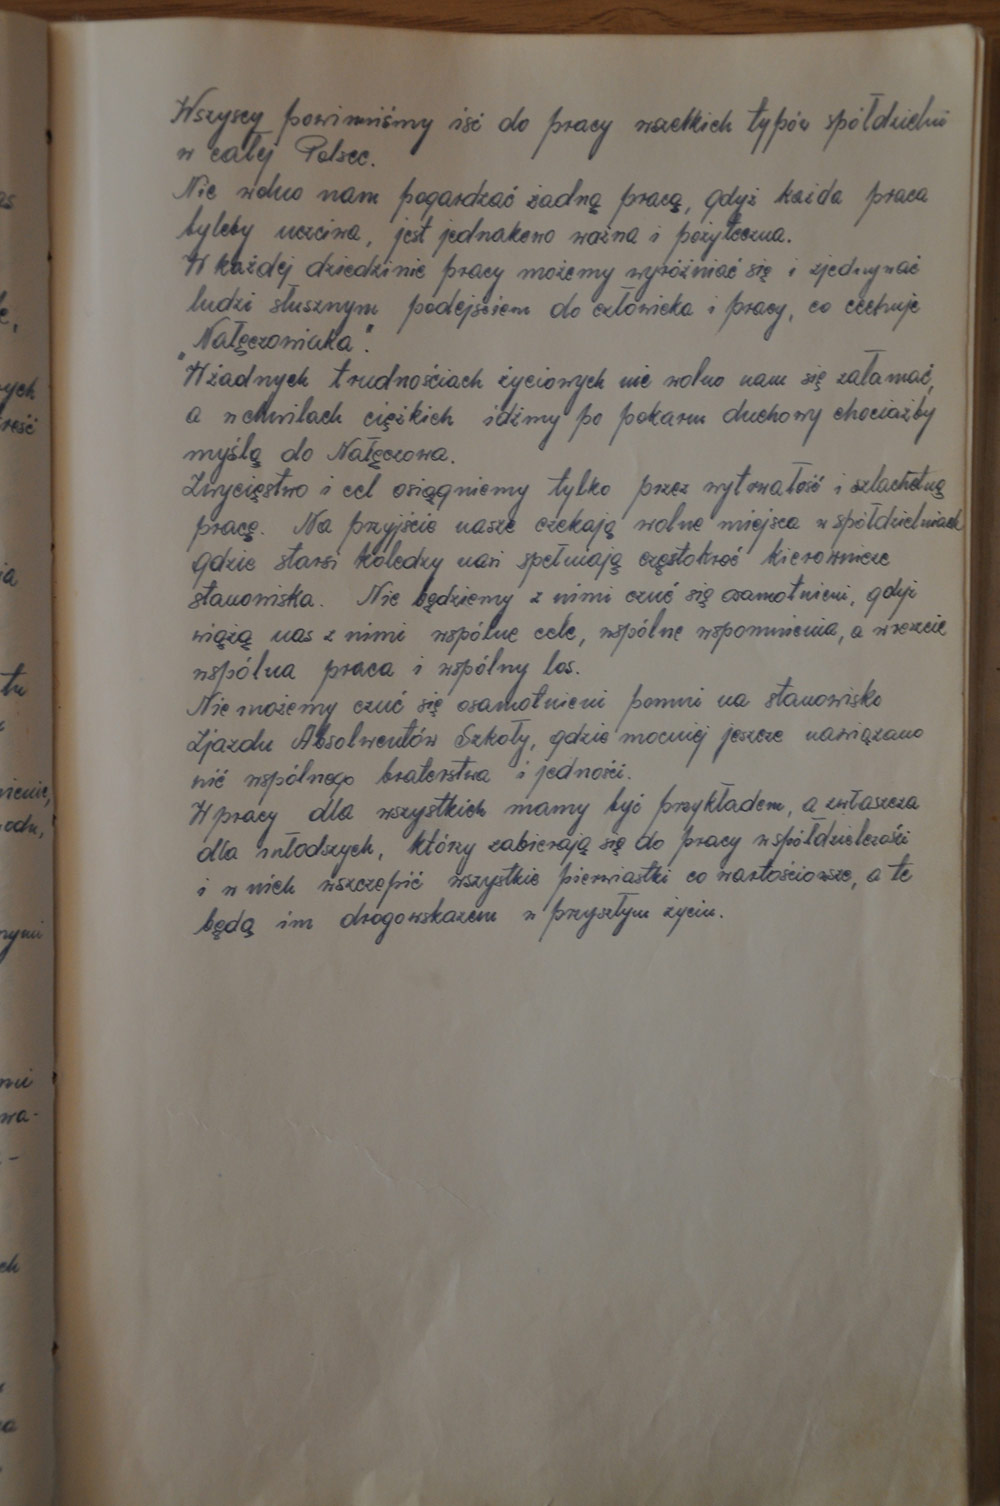 Wszyscy powinniśmy iść do pracy wszelkich typów spółdzielni
w całej Polsce.
Nie wolno nam pogardzać żadną pracą, gdyż każda praca
byleby uczciwa, jest jednakowo ważna i pożyteczna.
W każdej dziedzinie pracy możemy wyróżniać się i zjednywać
ludzi słusznym podejściem do człowieka i pracy, co cechuje
"Nałęczowiaka".
W żadnych trudnościach życiowych nie wolno nam się załamać,
a w chwilach ciężkich idźmy po pokarm duchowy chociażby
myślą do Nałęczowa.
Zwycięstwo i cel osiągniemy tylko przez wytrwałość i szlachetną
pracę. Na przyjście nasze czekają wolne miejsca w spółdzielniach
gdzie starsi koledzy nasi spełniają częstokroć kierownicze
stanowiska. Nie będziemy z nimi czuć się osamotnieni, gdyż
wiążą nas z nimi wspólne cele, wspólne wspomnienia, a wreszcie
wspólna praca i wspólny los.
Nie możemy czuć się osamotnieni pomni na stanowisko
Zjazdu Absolwentów Szkoły, gdzie mocniej jeszcze nawiązano
nić wspólnego braterstwa i jedności.
W pracy dla wszystkich mamy być przykładem, a zwłaszcza
dla młodszych, którzy zabierają się do pracy w spółdzielczości
i w nich wszczepić wszystkie pierwiastki co wartościowsze, a te
będą im drogowskazem w przyszłym życiu.